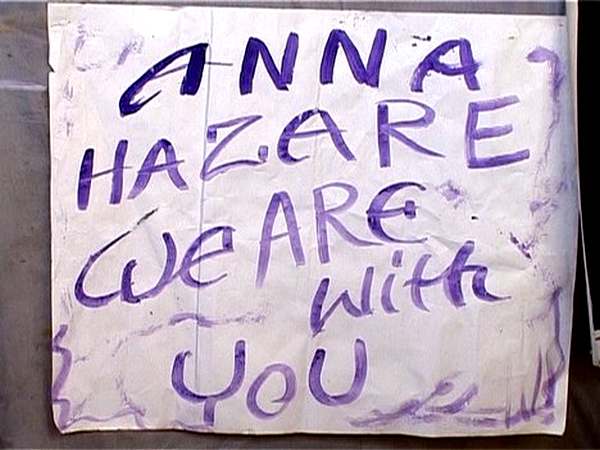 ANNA
HAZARE
We ARE
With
YOU